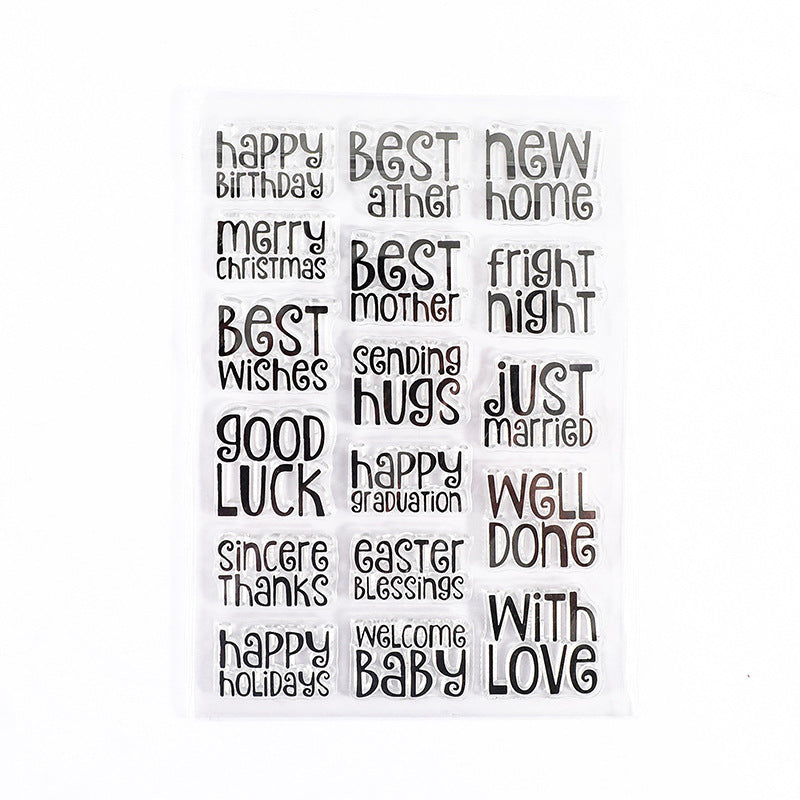 happy
BirthDay
merry
christmas
BEST
wishes
GOOD
LUCK
sincere
Thanks
happy
holidays
BEST
ather
BEST
mother
sending
hugs
happy
graduation
easter
BLessings
welcome
BABY
new
home
fright
night
JUST
marrieD
WeLL
Done
With
LOVe